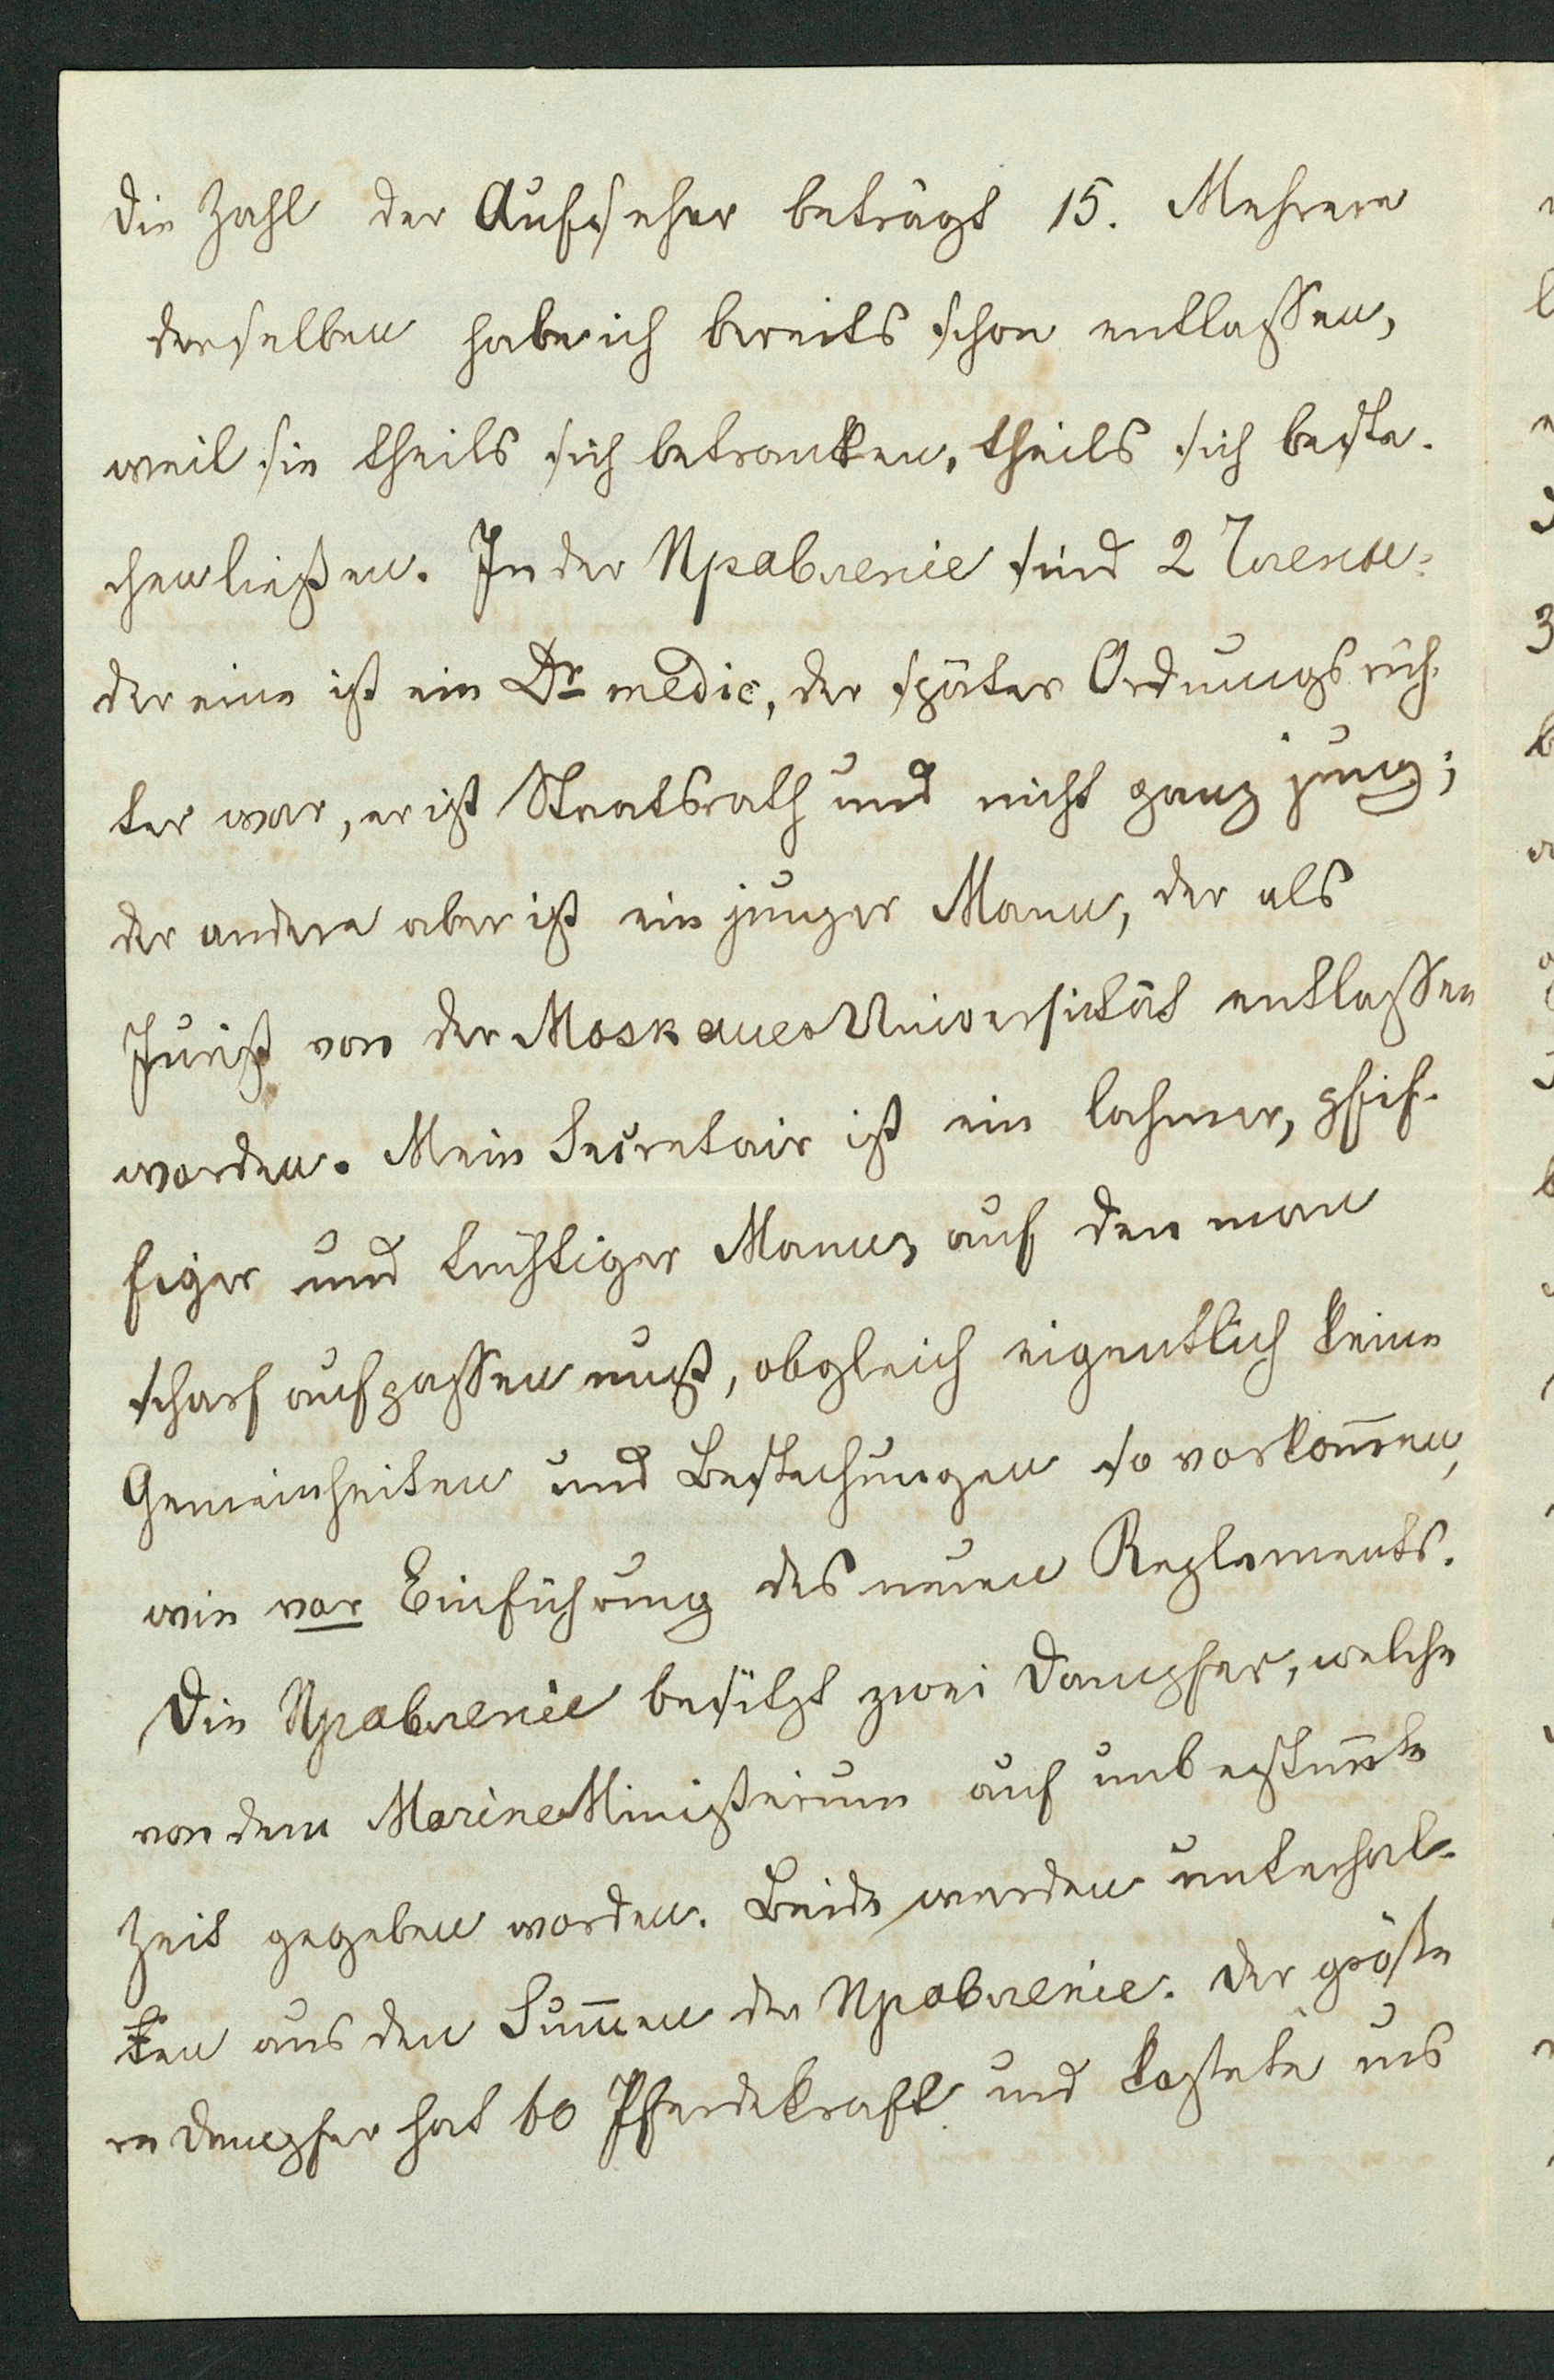 Die Zahl der Aufseher beträgt 15. Mehrere
derselben habe ich bereits schon entlassen,
weil sie theils sich betranken, theils sich beste-
chen ließen. In der Правленіе sind 2 Члены:
der eine ist ein Dr medic, der später Ordnungsrich-
ter war, er ist Staatsrath und nicht ganz jung;
der andere aber ist ein junger Mann, der als
Jurist von der Moskauer Universität entlassen
worden. Mein Secretair ist ein lahmer, pfif-
figer und tüchtiger Mann, auf den man
scharf aufpassen muß, obgleich eigentlich keine
Gemeinheiten und Bestechungen so vorkom̄en,
wie vor Einführung des neuen Reglements.
Die Правленіе besitzt zwei Dampfer, welche
von dem Marine Ministerium auf unbestim̄te
Zeit gegeben worden. Beide werden unterhal-
ten aus den Sum̄en der Правленіе. Der größe
re Dampfer hat 60 Pferdekraft und kostete uns